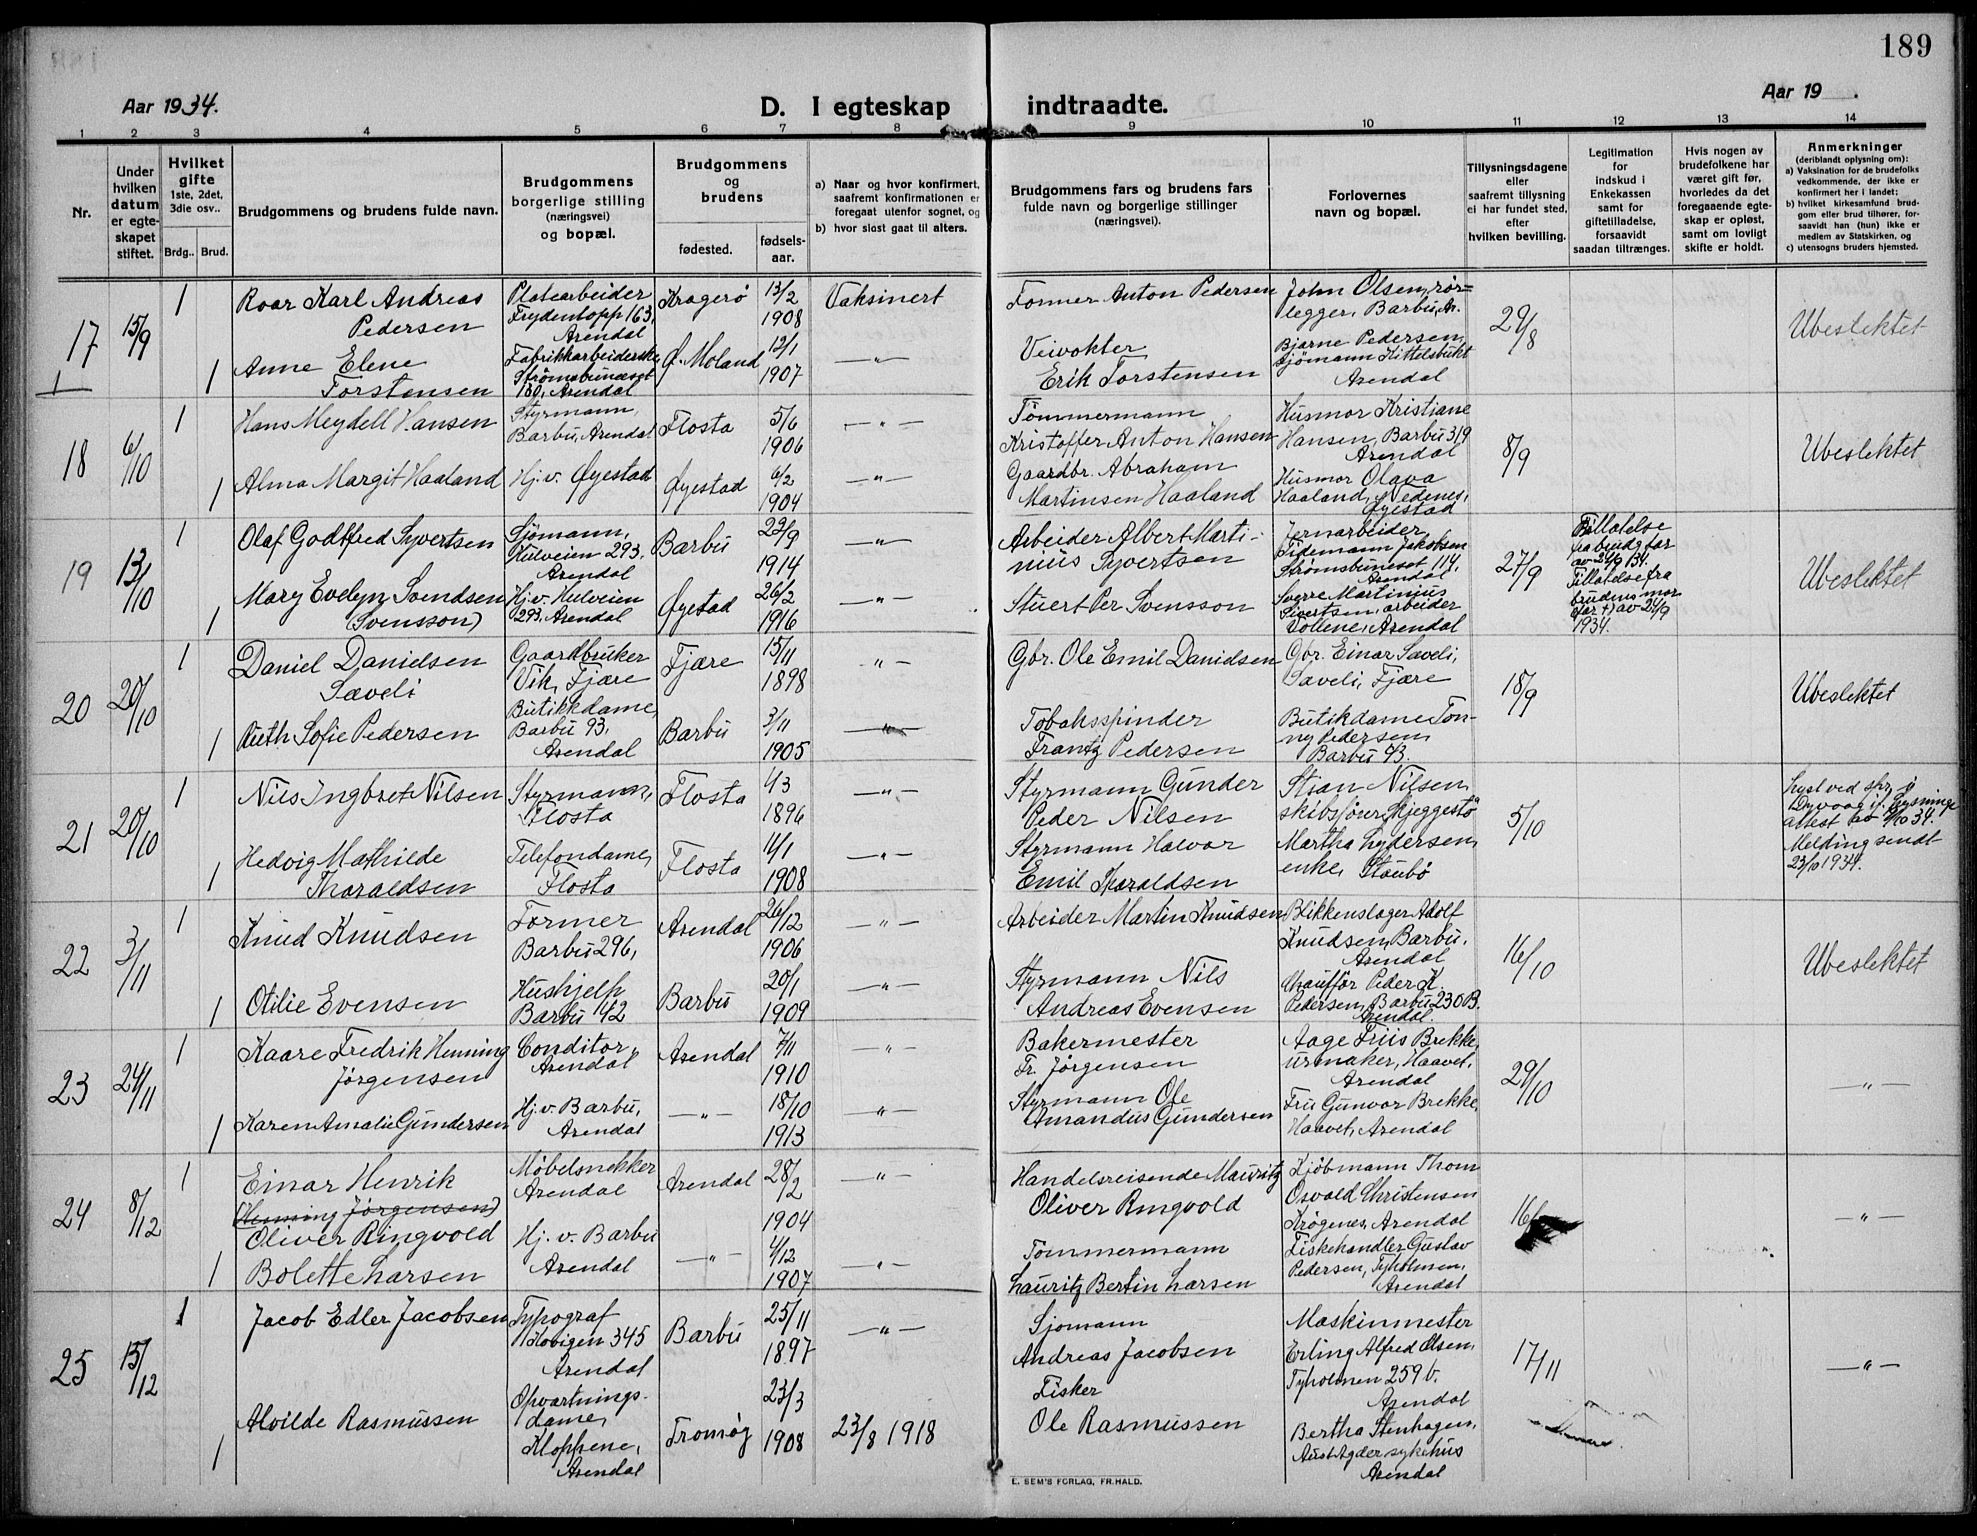 189
Aar 1934.
D. I egteskap indtraadte.
Aar 19 .
1 2 3 4 5 6 7 8 9 10 11 12 13 14
Nr.
Under hvilken datum er egteskapet stiftet.
Hvilket gifte 1ste, 2det, 3die osv..
Brdg.. Brud.
Brudgommens og brudens fulde navn.
Brudgommens borgerlige stilling (næringsvei) og bopæl.
Brudgommens og brudens
fødested. fødsels-aar.
a) Naar og hvor konfirmert, saafremt konfirmationen er foregaat utenfor sognet, og
b) hvor sidst gaat til alters.
Brudgommens fars og brudens fars fulde navn og borgerlige stillinger (næringsvei).
Forlovernes navn og bopæl.
Tillysningsdagene eller saafremt tillysning ei har fundet sted, efter hvilken bevilling.
Legitimation for indskud i Enkekassen samt for giftetilladelse, forsaavidt saadan tiltrænges.
Hvis nogen av brudefolkene har været gift før, hvorledes da det foregaaende egteskap er opløst, samt om lovligt skifte er holdt.
Anmerkninger (deriblandt oplysning om):
a) Vaksination for de brudefolks vedkommende, der ikke er konfirmert her i landet;
b) hvilket kirkesamfund brudgom eller brud tilhører, forsaavidt han (hun) ikke er medlem av Statskirken, og
c) utensogns bruders hjemsted.
17
1
15/9
1
Roar Karl Andreas
Pedersen
Platearbeider
Frydentopp 163,
Arendal
Kragerø
13/2
1908
Vaksinert
Former Anton Pedersen
John Olsen, rør-
legger, Barbu, Ar.
29/8
Ubeslektet
1
Anne Elene
Torstensen
Fabrikkarbeiderske
Strømsbuneset
180, Arendal
Ø. Moland
12/1
1907
—"—
Veivokter
Erik Torstensen
Bjarne Pedersen,
sjømann Kittelsbukt
Arendal
18
6/10
1
Hans Meydell Hansen
Styrmann,
Barbu, Arendal
Flosta
5/6
1906
—"—
Tømmermann
Kristoffer Anton Hansen
Husmor Kristiane
Hansen, Barbu 319
Arendal
8/9
Ubeslektet
1
Alma Margit Haaland
Hj.v. Øyestad
Øyestad
6/2
1904
—"—
Gaardbr. Abraham
Martinsen Haaland
Husmor Olava
Haaland, Nedenes,
Øyestad
19
13/10
1
Olaf Godtfred Syvertsen
Sjømann,
Hulveien 293.
Arendal
Barbu
29/9
1914
—"—
Arbeider Albert Marti-
nius Syvertsen
Jernarbeider
Tidemann Jakobsen
Strømsbuneset 114,
Arendal
27/9
Tillatelse
fra brudg far
av 24/9 34.
Tillatelse fra
brudens mor
(far +) av 24/9
1934.
Ubeslektet
1
Mary Evelyn Svendsen
(Svensson)
Hj.v. Hulveien
293, Arendal
Øyestad
26/2
1916
—"—
Stuert Per Svensson
Sverre Martinius
Sivertsen, arbeider
Vollene, Arendal
20
20/10
1
Daniel Danielsen
Sæveli
Gaardbruker
Vik, Fjære
Fjære
15/11
1898
"—
Gbr. Ole Emil Danielsen
Gbr. Einar Sæveli,
Sæveli, Fjære
18/9
Ubeslektet
1
Ruth Sofie Pedersen
Butikkdame,
Barbu 93,
Arendal
Barbu
3/11
1905
—"—
Tobaksspinder
Frantz Pedersen
Butikdame Ton-
ny Pedersen
Barbu 93.
21
20/10
1
Nils Ingbret Nilsen
Styrmann,
Flosta
Flosta
4/3
1896
—"—
Styrmann Gunder
Peder Nilsen
Stian Nilsen
skibsfører, Skjeggestø
5/10
Lyst ved spr. i
Dyvaag if. lysnings
attest av 34.
Melding sendt
23/10 1934.
1
Hedvig Mathilde
Tharaldsen
Telefondame,
Flosta
Flosta
11/1
1908
—"—
Styrmann Halvor
Emil Tharaldsen
Martha Lydersen,
enke, Staubø
22
3/11
1
Knud Knudsen
Former
Barbu 296,
Arendal
26/12
1906
—"—
Arbeider Martin Knudsen
Blikkenslager Adolf
Knudsen, Barbu.
Arendal
16/10
Ubeslektet
1
Otilie Evensen
Hushjelp
Barbu 142
Barbu
20/1
1909
—"—
Styrmann Nils
Andreas Evensen
Chauffør Peder K.
Pedersen, Barbu 230B.
Arendal.
23
24/11
1
Kaare Fredrik Henning
Jørgensen
Conditor,
Arendal
Arendal
7/11
1910
—"—
Bakermester
Fr. Jørgensen
Aage Friis Brekke,
urmaker, Haavet,
Arendal
29/10
—"—
1
Karen Amalie Gundersen
Hj.v. Barbu,
Arendal
—"—
18/10
1913
—"—
Styrmann Ole
Amandus Gundersen
Fru Gunvor Brekke,
Haavet, Arendal
24
8/12
1
Einar Henrik
(Henning Jørgensen)
Oliver Ringvold
Møbelsnekker
Arendal
Arendal
28/2
1904
—"—
Handelsreisende Mauritz
Oliver Ringvold
Kjøbmann Thom
Osvald Christensen
Krøgenes, Arendal
16/
—"—
1
Bolette Larsen
Hj. v. Barbu
Arendal
—"—
4/12
1907
—"—
Tømmermann
Lauritz Bertin Larsen
Fiskehandler Gustav
Pedersen, Tyholmen,
Arendal
25
15/12
1
Jacob Edler Jacobsen
Typograf
Kovigen 345
Arendal
Barbu
25/11
1897
—"—
Sjømann
Andreas Jacobsen
Maskinmester
Erling Alfred Olsen,
Tyholmen 259 b.
Arendal
17/11
—"—
1
Alvilde Rasmussen
Opvartnings-
dame,
Kloppene,
Arendal
Tromøy
23/3
1908
23/8 1918
Fisker
Ole Rasmussen
Bertha Stenhagen,
Aust Agder sykehus
Arendal
E. SEM'S FORLAG, FR.HALD.